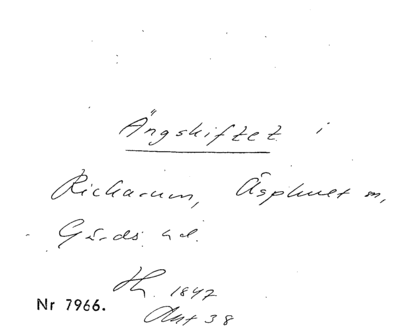 Ängskiftet i
Rickarum, Äsphult sn,
Gärds hd.
Th. 1847
Akt 38
Nr 7966.